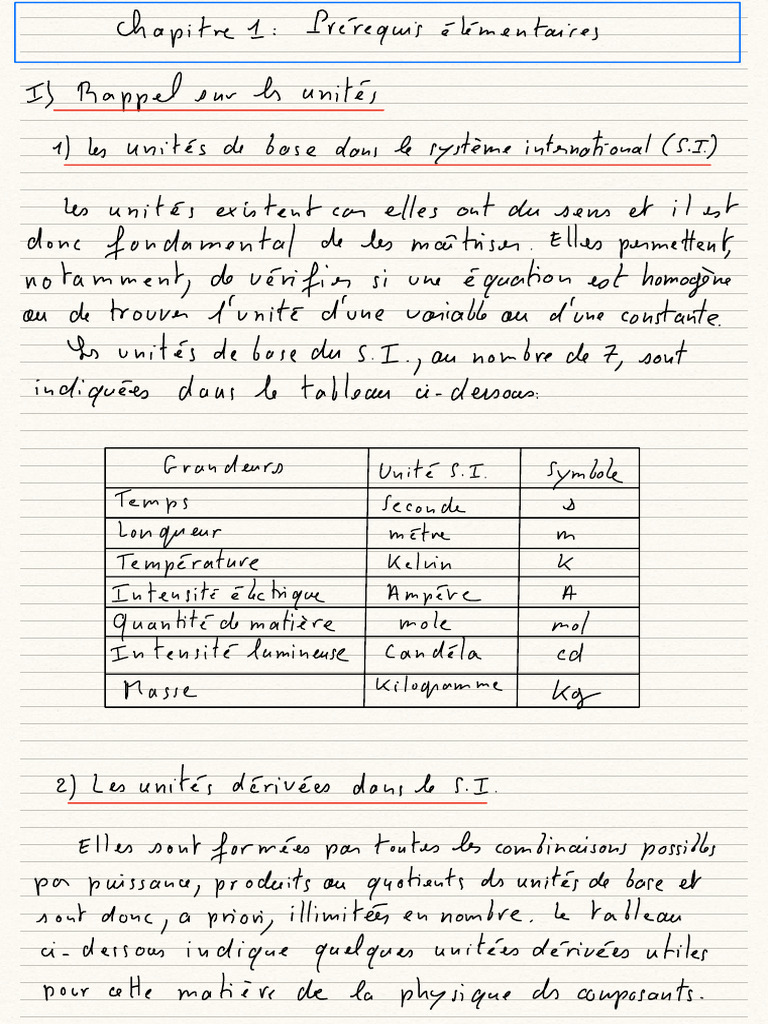 Chapitre 1: Prérequis élémentaires
I) Rappel sur les unités
1) Les unités de base dans le système international (S.I.)
Les unités existent car elles ont du sens et il est
donc fondamental de les maîtriser. Elles permettent,
notamment, de vérifier si une équation est homogène
ou de trouver l'unité d'une variable ou d'une constante.
Les unités de base du S.I., au nombre de 7, sont
indiquées dans le tableau ci-dessous:
Grandeurs Unité S.I. Symbole
Temps Seconde s
Longueur mètre m
Température Kelvin K
Intensité électrique Ampère A
Quantité de matière mole mol
Intensité lumineuse Candéla cd
Masse Kilogramme Kg
2) Les unités dérivées dans le S.I.
Elles sont formées par toutes les combinaisons possibles
par puissance, produits ou quotients des unités de base et
sont donc, a priori, illimitées en nombre. Le tableau
ci-dessous indique quelques unitées dérivées utiles
pour cette matière de la physique des composants.